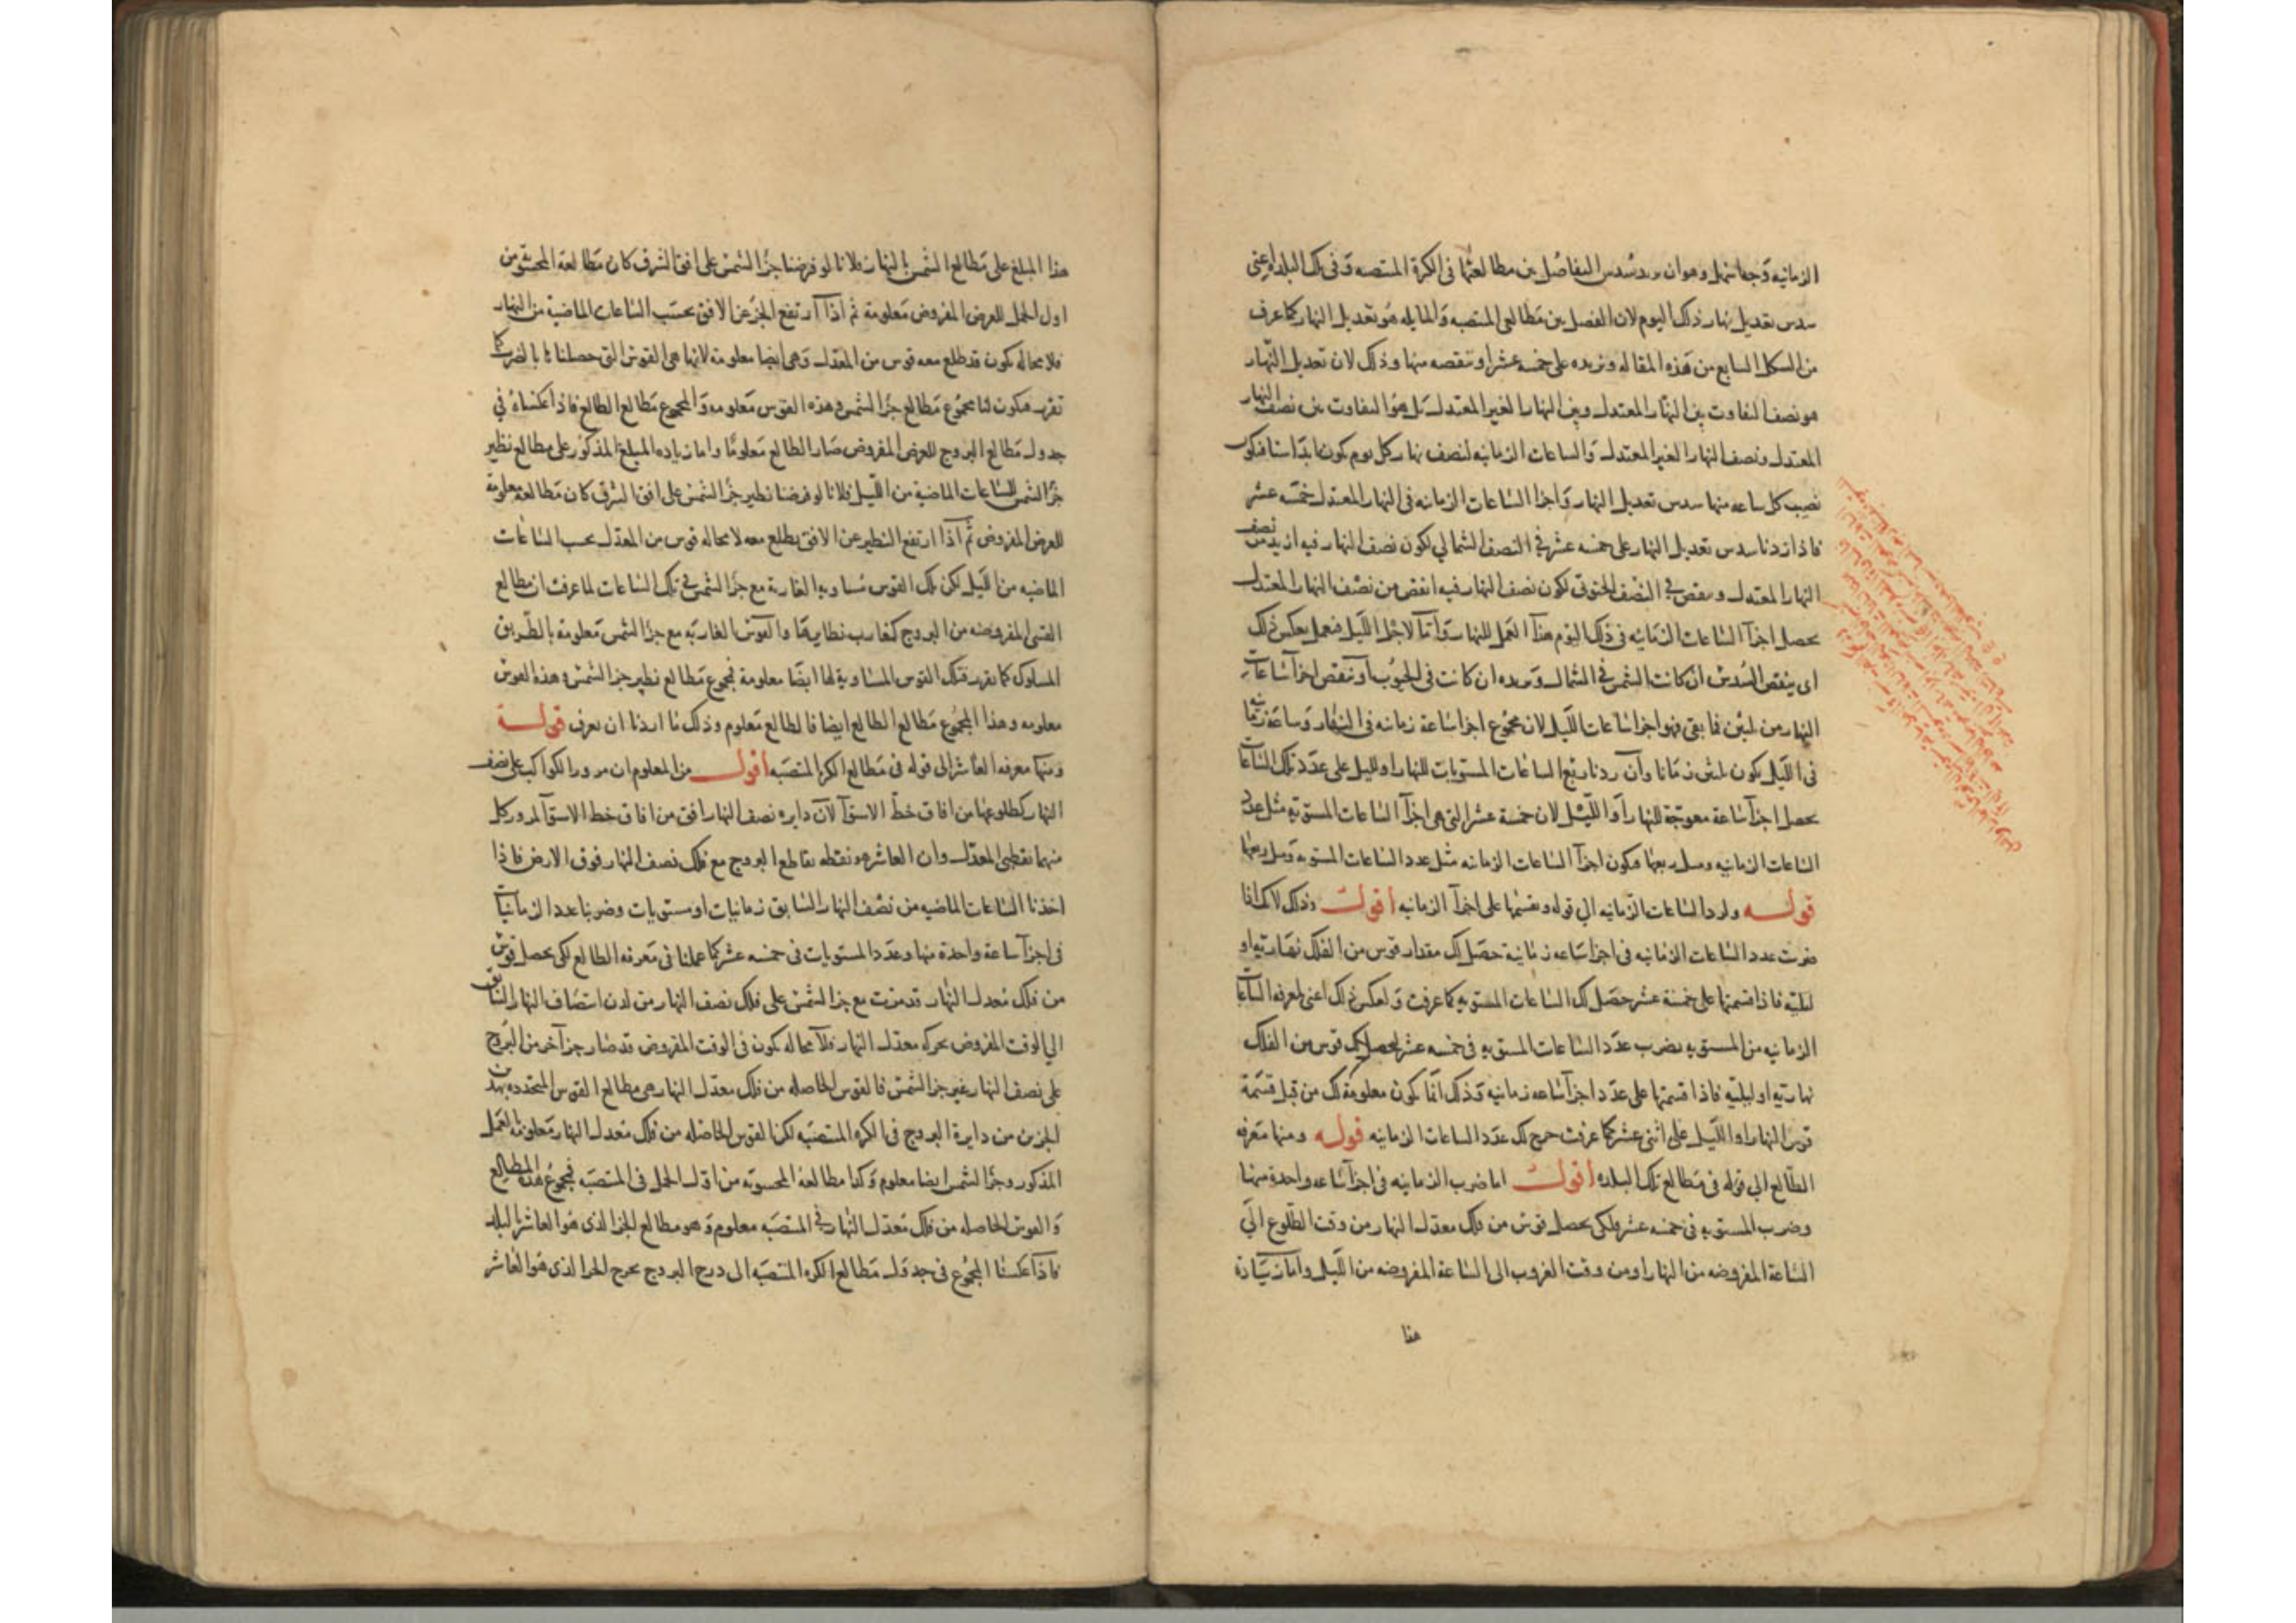 الزمانيه وجها سهل وهو ان يريد سدس التفاضل بين مطالعها فى الكرة المنتصبه وفى تلك البلده اعنى
سدس تعديل نهار ذلك اليوم لان الفضل بين مطالعى المنتصبه والمايله هو تعديل النهار كما عرف
من الشكل السابع من هذه المقاله ونريده على خمسة عشر او ننقصه منها وذلك لان تعديل النهار
هو نصف التفاوت بين النهار المعتدل وبين النهار الغير المعتدل بل هو التفاوت بين نصف النهار
المعتدل ونصف النهار الغير المعتدل والساعات الزمانيه لنصف نهار كل يوم يكون ابدا ستا فيكون
نصيب كل ساعه منها سدس تعديل النهار واجزا الساعات الزمانيه فى النهار المعتدل خمسة عشر
فاذا زدنا سدس تعديل النهار على خمسه عشر فى النصف الشمالي لكون نصف النهار فيه ازيد من نصف
النهار المعتدل وينقص فى النصف الجنوبى لكون نصف النهار فيه انقص من نصف النهار المعتدل
يحصل اجزآ الساعات الزمانيه فى ذلك اليوم هذا العمل للنهار وأما لاجزا الليل فيعمل بعكس ذلك
اى ينقص السدس ان كانت الشمس فى الشمال ويزيده ان كانت فى الجنوب او ننقص اجزآ ساعات
النهار من ثلثين فما بقى فهو اجزا ساعات الليل لان مجموع اجزا ساعة زمانيه فى النهار وساعة زمانيه
فى الليل يكون ثلثين زمانا وان زدنا ربع الساعات المستويات للنهار او لليل على عدد تلك الساعات
يحصل اجزآ ساعة معوجة للنهار أو الليل لان خمسة عشر التى هى اجزآ الساعات المستويه مثل عدد
الساعات الزمانيه ومثل ربعها فيكون اجزآ الساعات الزمانيه مثل عدد الساعات المستويه ومثل ربعها
قوله ولرد الساعات الزمانيه الي قوله ونقسمها على اجزآ الزمانيه أقول وذلك لانك اذا
ضربت عدد الساعات الزمانيه فى اجزا ساعه زمانية حصل لك مقدار قوس من الفلك نهاريه او
ليليه فاذا قسمتها على خمسة عشر حصل لك الساعات المستويه كما عرفت ولعكس ذلك اعنى لمعرفه الساعات
الزمانيه من المستويه يضرب عدد الساعات المستويه فى خمسه عشر ليحصل لك قوس من الفلك
نهاريه او ليليه فاذا قسمتها على عدد اجزآ ساعه زمانيه وذلك انما يكون معلومة لك من قبل قسمة
قوس النهار او الليل على اثنى عشر كما عرفت خرج لك عدد الساعات الزمانيه قوله ومنها معرفه
الطالع الي قوله فى مطالع تلك البلده أقول اما ضرب الزمانيه فى اجزآ ساعه واحدة منها
وضرب المستويه فى خمسه عشر فلكى يحصل قوس من فلك معدل النهار من وقت الطلوع الي
الساعة المفروضه من النهار او من وقت الغروب الى الساعة المفروضه من الليل واما زيادة
هذا
هذا المبلغ على مطالع الشمس بالنهار فلانا لو فرضنا جزا الشمس على افق الشرق كان مطالعه المحسوبه من
اول الحمل للعرض المفروض معلومة ثم اذا ارتفع الجز عن الافق بحسب الساعات الماضية من النهار
فلا محاله يكون قد طلع معه قوس من المعدل وهى ايضا معلومة لانها هى القوس التى حصلناها بالضرب كما
تقرر فيكون لنا مجموع مطالع جزا الشمس وهذه القوس معلومه والمجموع مطالع الطالع فاذا عكسناه في
جدول مطالع البروج للعرض المفروض صار الطالع معلوما واما زياده المبلغ المذكور على مطالع نظير
جزا الشمس للساعات الماضية من الليل فلانا لو فرضنا نظير جزا الشمس على افق الشرق كان مطالعه معلومة
للعرض المفروض ثم اذا ارتفع النظير عن الافق يطلع معه لا محاله قوس من المعدل بحسب الساعات
الماضيه من الليل لكن تلك القوس مساويه الغاربة مع جزا الشمس فى تلك الساعات لما عرفت ان مطالع
القسى المفروضه من البروج كمغارب نظايرها والقوس الغاربه مع جزا الشمس معلومة بالطريق
المسلوك كما تقرر فتلك القوس المساوية لها ايضا معلومة فمجموع مطالع نظير جزا الشمس وهذه القوس
معلومه وهذا المجموع مطالع الطالع ايضا فالطالع معلوم وذلك ما اردنا ان نعرف قوله
ومنها معرفه العاشر الى قوله فى مطالع الكرا المنتصبه أقول من المعلوم ان مرور الكواكب على نصف
النهار كطلوعها من افاق خط الاستوآ لان دايره نصف النهار افق من افاق خط الاستوآ لمرور كل
منهما بقطبى المعدل وان العاشر هو نقطه تقاطع البروج مع فلك نصف النهار فوق الارض فاذا
اخذنا الساعات الماضيه من نصف النهار السابق زمانيات او مستويات وضربنا عدد الزمانيات
فى اجزآ ساعة واحدة منها وعدد المستويات فى خمسه عشر كما عملنا فى معرفه الطالع لكى يحصل قوس
من فلك معدل النهار قد مرت مع جزا الشمس على فلك نصف النهار من لدن انتصاف النهار السابق
الي الوقت المفروض بحركه معدل النهار فلا محاله يكون فى الوقت المفروض قد صار جز آخر من البروج
على نصف النهار غير جزا الشمس فالقوس الحاصله من فلك معدل النهار هى مطالع القوس المتحدده بهذين
الجزين من دايرة البروج فى الكره المنتصبه لكن القوس الحاصله من فلك معدل النهار معلومة بالعمل
المذكور وجزا الشمس ايضا معلوم وكذا مطالعه المحسوبه من اول الحمل فى المنتصبه فمجموع هذه المطالع
والقوس الحاصله من فلك معدل النهار فى المنتصبه معلوم وهو مطالع الجزا الذى هو العاشر بالبلد
فاذا عكسنا المجموع فى جدول مطالع الكره المنتصبه الى درج البروج يخرج الجزا الذى هو العاشر